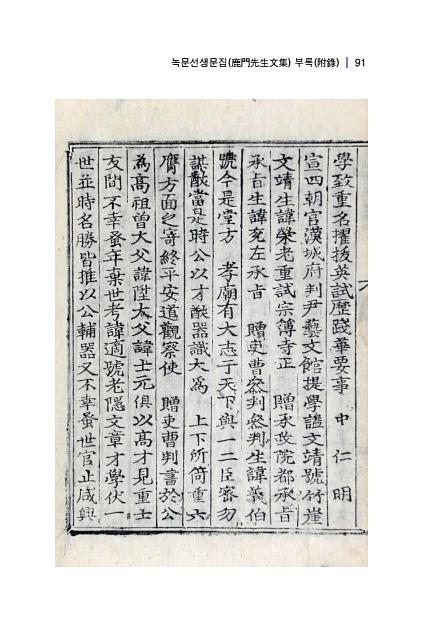 녹문선생문집(鹿門先生文集) 부록(附錄) | 91
學致重名擢拔英試歷踐華要事 中 仁 明
宣四朝官漢城府判尹藝文館提學謚文靖號竹崖
文靖生諱榮老重試宗簿寺正 贈承政院都承旨
承旨生諱兗左承旨 贈吏曹叅判叅判生諱義伯
號今是堂方 孝廟有大志于天下與一二臣密勿
謨猷當是時公以才猷器識大爲 上下所倚重六
膺方面之寄終平安道觀察使 贈吏曹判書於公
為高祖曾大父諱陞大父諱士元俱以高才見重士
友間不幸蚤年棄世考諱適號老隱文章才學伏一
世並時名勝皆推以公輔器又不幸蚤世官止咸興